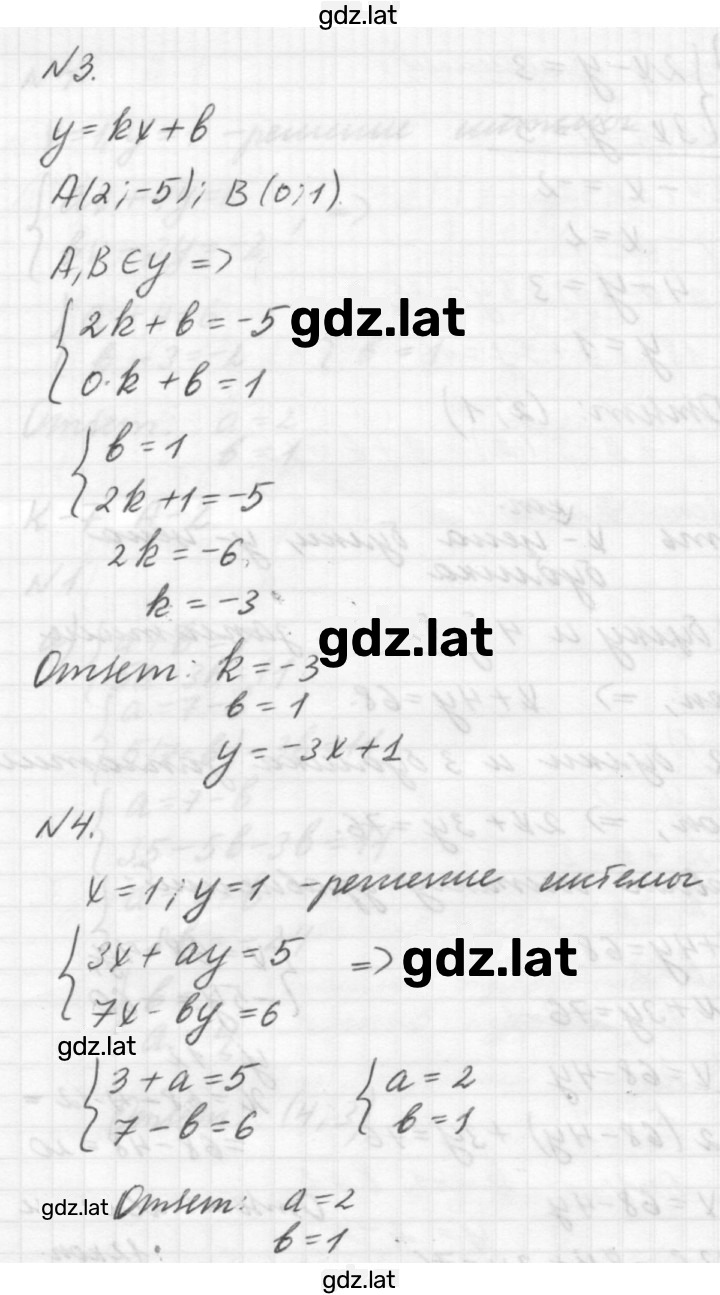 gdz.lat
№3.
y = kx + b
A(2; -5); B(0; 1).
A, B ∈ y =>
{ 2k + b = -5 gdz.lat
0·k + b = 1
{ b = 1
2k + 1 = -5
2k = -6
k = -3
gdz.lat
Ответ: k = -3
b = 1
y = -3x + 1
№4.
x = 1; y = 1 - решение системы
{ 3x + ay = 5 => gdz.lat
7x - by = 6
gdz.lat
{ 3 + a = 5 { a = 2
7 - b = 6 b = 1
gdz.lat Ответ: a = 2
b = 1
gdz.lat